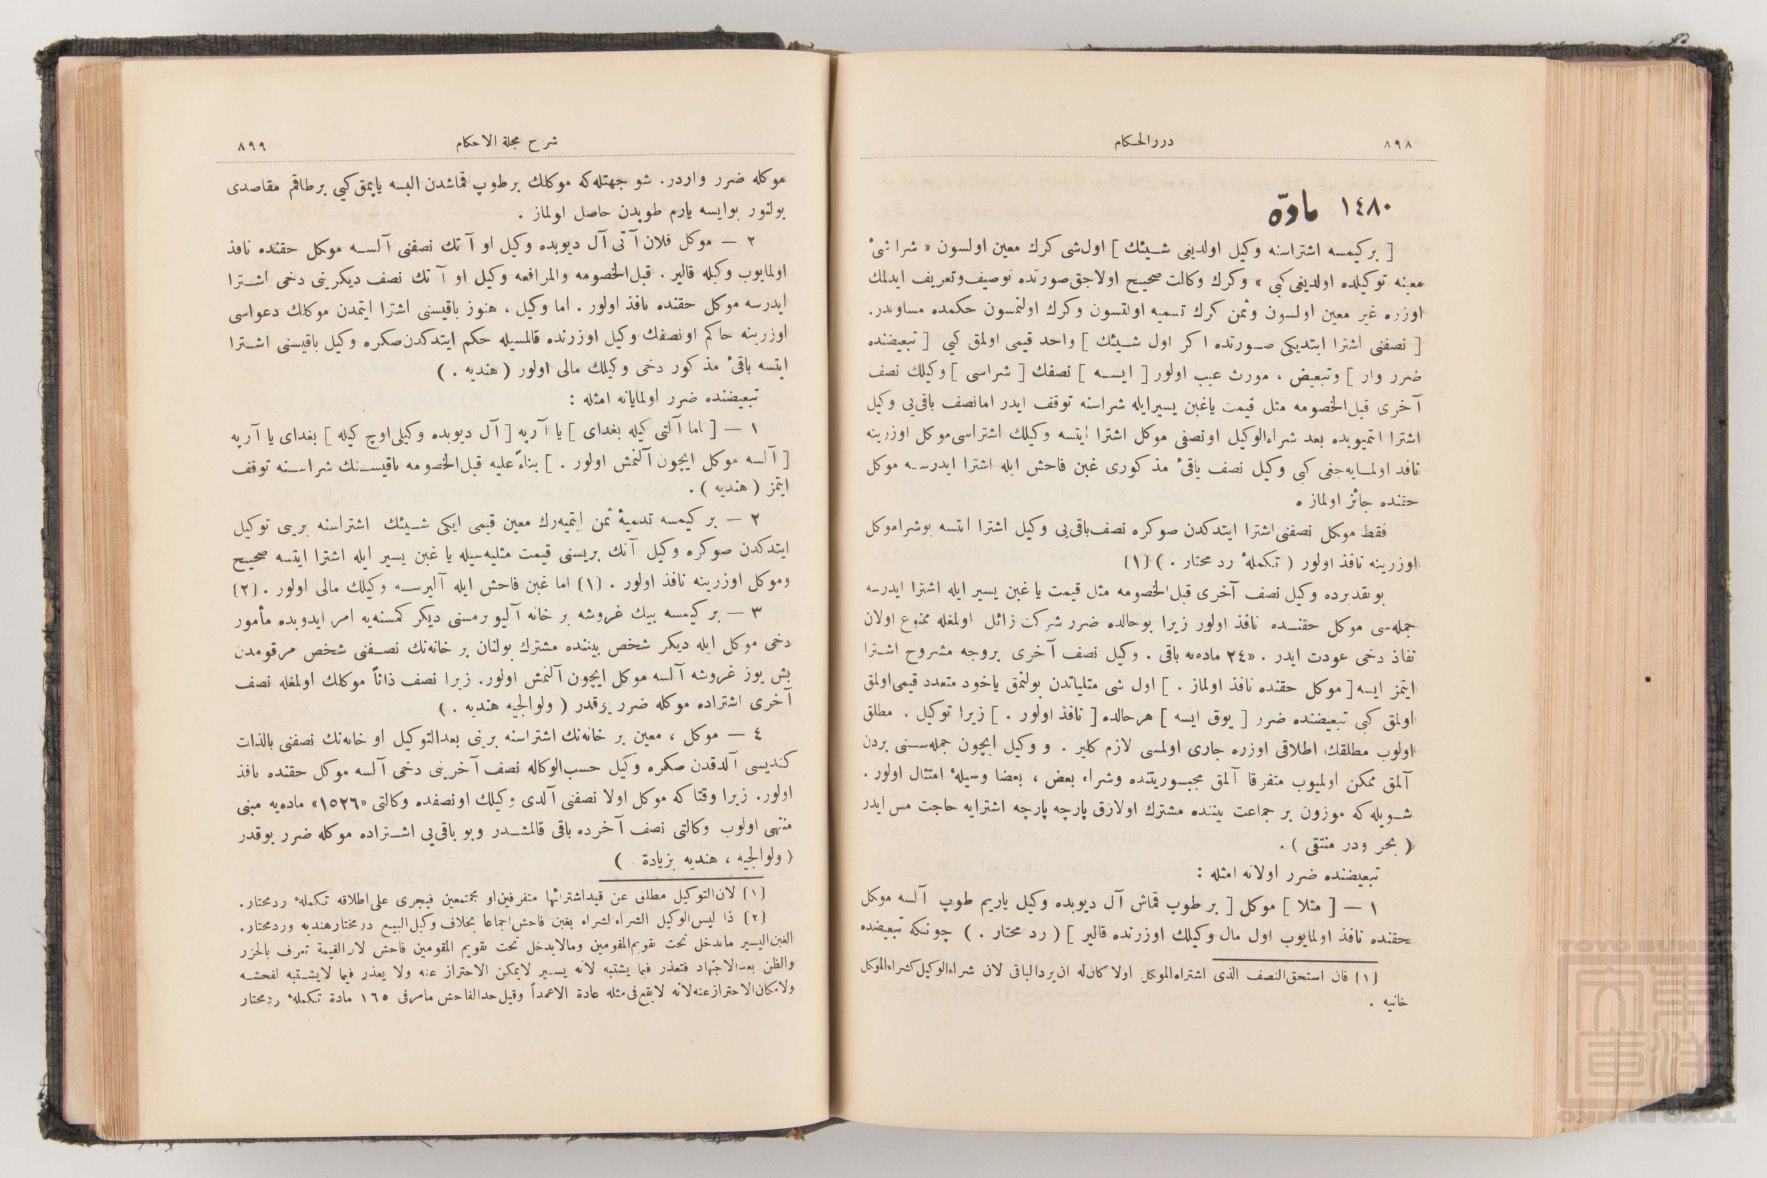 ٨٩٨
دررالحكام
١٤٨٠ مادّه
[ بركيمسه اشتراسنه وكيل اولديغى شيئك ] اول‌شى كرك معين اولسون « شراشىء
معينه توكيلده اولديغى‌كبى » وكرك وكالت صحيح اولاجق‌صورتده توصيف‌وتعريف ايدلمك
اوزره غير معين اولسون وثمن كرك تسميه اولنسون وكرك اولنمسون حكمده مساويدر.
[ نصفنى اشترا ايتديكى صورتده اكر اول شيئك ] واحد قيمى اولمق كبى [ تبعيضنده
ضرر وار ] وتبعيض ، مورث عيب اولور [ ايسه ] نصفك [ شراسى ] وكيلك نصف
آخرى قبل‌الخصومه مثل قيمت ياغبن يسيرايله شراسنه توقف ايدر امانصف باقى‌يى وكيل
اشترا ايتميوبده بعد شراءالوكيل اونصفى موكل اشترا ايتسه وكيلك اشتراسى‌موكل اوزرينه
نافذ اولمايه‌جغى كبى وكيل نصف باقىء مذكورى غبن فاحش ايله اشترا ايدرسه موكل
حقنده جائز اولماز .
فقط موكل نصفنى‌اشترا ايتدكدن صوكره نصف‌باقى‌يى وكيل اشترا ايتسه بوشراموكل
اوزرينه نافذ اولور ( تكملۀ رد محتار . ) (١)
بوتقديرده وكيل نصف آخرى قبل‌الخصومه مثل قيمت ياغبن يسير ايله اشترا ايدرسه
جمله‌سى موكل حقنده نافذ اولور زيرا بوحالده ضرر شركت زائل اولمغله ممنوع اولان
نفاذ دخى عودت ايدر . «٢٤ ماده‌يه باق . وكيل نصف آخرى بروجه مشروح اشترا
ايتمز ايسه [ موكل حقنده نافذ اولماز . ] اول شى مثلياتدن بولنمق ياخود متعدد قيمى‌اولمق
اولمق كبى تبعيضنده ضرر [ يوق ايسه ] هرحالده [ نافذ اولور . ] زيرا توكيل . مطلق
اولوب مطلقك اطلاقى اوزره جارى اولمسى لازم كلير . و وكيل ايچون جمله‌سنى بردن
آلمق ممكن اولميوب متفرقا آلمق مجبوريتنده وشراء بعض ، بعضا وسيلۀ امتثال اولور.
شويله‌كه موزون بر جماعت بيننده مشترك اولازق پارچه پارچه اشترايه حاجت مس ايدر
( بحر ودر منتقى ) .
تبعيضنده ضرر اولانه امثله :
١ — [ مثلا ] موكل [ بر طوپ قماش آل ديوبده وكيل ياريم طوپ آلسه موكل
حقنده نافذ اولمايوب اول مال وكيلك اوزرنده قالير ] ( رد محتار . ) چونكه تبعيضنده
(١) فان استحق‌النصف الذى اشتراه‌الموكل اولا كان‌له ان‌يردالباقى لان شراءالوكيل‌كشراءالموكل
خانيه .
شرح مجلة الاحكام
٨٩٩
موكله ضرر واردر. شو جهتله‌كه موكلك برطوپ قماشدن البسه ياپمق‌كبى برطاقم مقاصدى
بولنور بوايسه يارم طوپدن حاصل اولماز .
٢ — موكل فلان آتى آل ديوبده وكيل او آتك نصفنى آلسه موكل حقنده نافذ
اولمايوب وكيله قالير . قبل‌الخصومه والمرافعه وكيل او آتك نصف ديكرينى دخى اشترا
ايدرسه موكل حقنده نافذ اولور . اما وكيل ، هنوز باقيسنى اشترا ايتمدن موكلك دعواسى
اوزرينه حاكم اونصفك وكيل اوزرنده قالمسيله حكم ايتدكدن‌صكره وكيل باقيسنى اشترا
ايتسه باقىء مذكور دخى وكيلك مالى اولور ( هنديه . )
تبعيضنده ضرر اولمايانه امثله :
١ — [ اما آلتى كيله بغداى ] يا آرپه [ آل ديوبده وكيلى‌اوچ كيله ] بغداى يا آرپه
[ آلسه موكل ايچون آلنمش اولور . ] بناءً عليه قبل‌الخصومه باقيسنك شراسنه توقف
ايتمز ( هنديه ) .
٢ — بر كيمسه تسميۀ ثمن ايتميه‌رك معين قيمى ايكى شيئك اشتراسنه برينى توكيل
ايتدكدن صوكره وكيل آنك بريسنى قيمت مثليه‌سيله يا غبن يسير ايله اشترا ايتسه صحيح
وموكل اوزرينه نافذ اولور . (١) اما غبن فاحش ايله آليرسه وكيلك مالى اولور . (٢)
٣ — بر كيمسه بيك غروشه بر خانه آليويرمسنى ديكر كمسنه‌يه امر ايدوبده مأمور
دخى موكل ايله ديكر شخص بيننده مشترك بولنان بر خانه‌نك نصفنى شخص مرقومدن
بش يوز غروشه آلسه موكل ايچون آلنمش اولور. زيرا نصف ذاتاً موكلك اولمغله نصف
آخرى اشتراده موكله ضرر يوقدر ( ولوالجيه هنديه . )
٤ — موكل ، معين بر خانه‌نك اشتراسنه برينى بعدالتوكيل او خانه‌نك نصفنى بالذات
كنديسى آلدقدن صكره وكيل حسب‌الوكاله نصف آخرينى دخى آلسه موكل حقنده نافذ
اولور. زيرا وقتا كه موكل اولا نصفنى آلدى وكيلك اونصفده وكالتى «١٥٢٦» ماده‌يه مبنى
منتهى اولوب وكالتى نصف آخرده باقى قالمشدر وبو باقى‌يى اشتراده موكله ضرر يوقدر
( ولوالجيه ، هنديه بزيادة . )
(١) لان‌التوكيل مطلق عن قيداشترائها متفرقين‌او مجتمعين فيجرى على‌اطلاقه تكملۀ ردمحتار.
(٢) اذ ليس‌الوكيل الشراء لشراء بغبن فاحش‌اجماعا بخلاف وكيل‌البيع درمختارهنديه وردمحتار.
الغبن‌اليسير مايدخل تحت تقويم‌المقومين ومالايدخل تحت تقويم المقومين فاحش لان‌القيمة تعرف بالحزر
والظن بعدالاجتهاد فتعذر فيما يشتبه لأنه يسير لايمكن الاحتراز عنه ولا يعذر فيما لايشتبه لفحشه
ولامكان‌الاحترازعنه‌لأنه لايقع‌فى‌مثله عادة الاعمداً وقيل‌حدالفاحش مامرفى ١٦٥ مادة تكملۀ ردمحتار
TOYO BUNKO